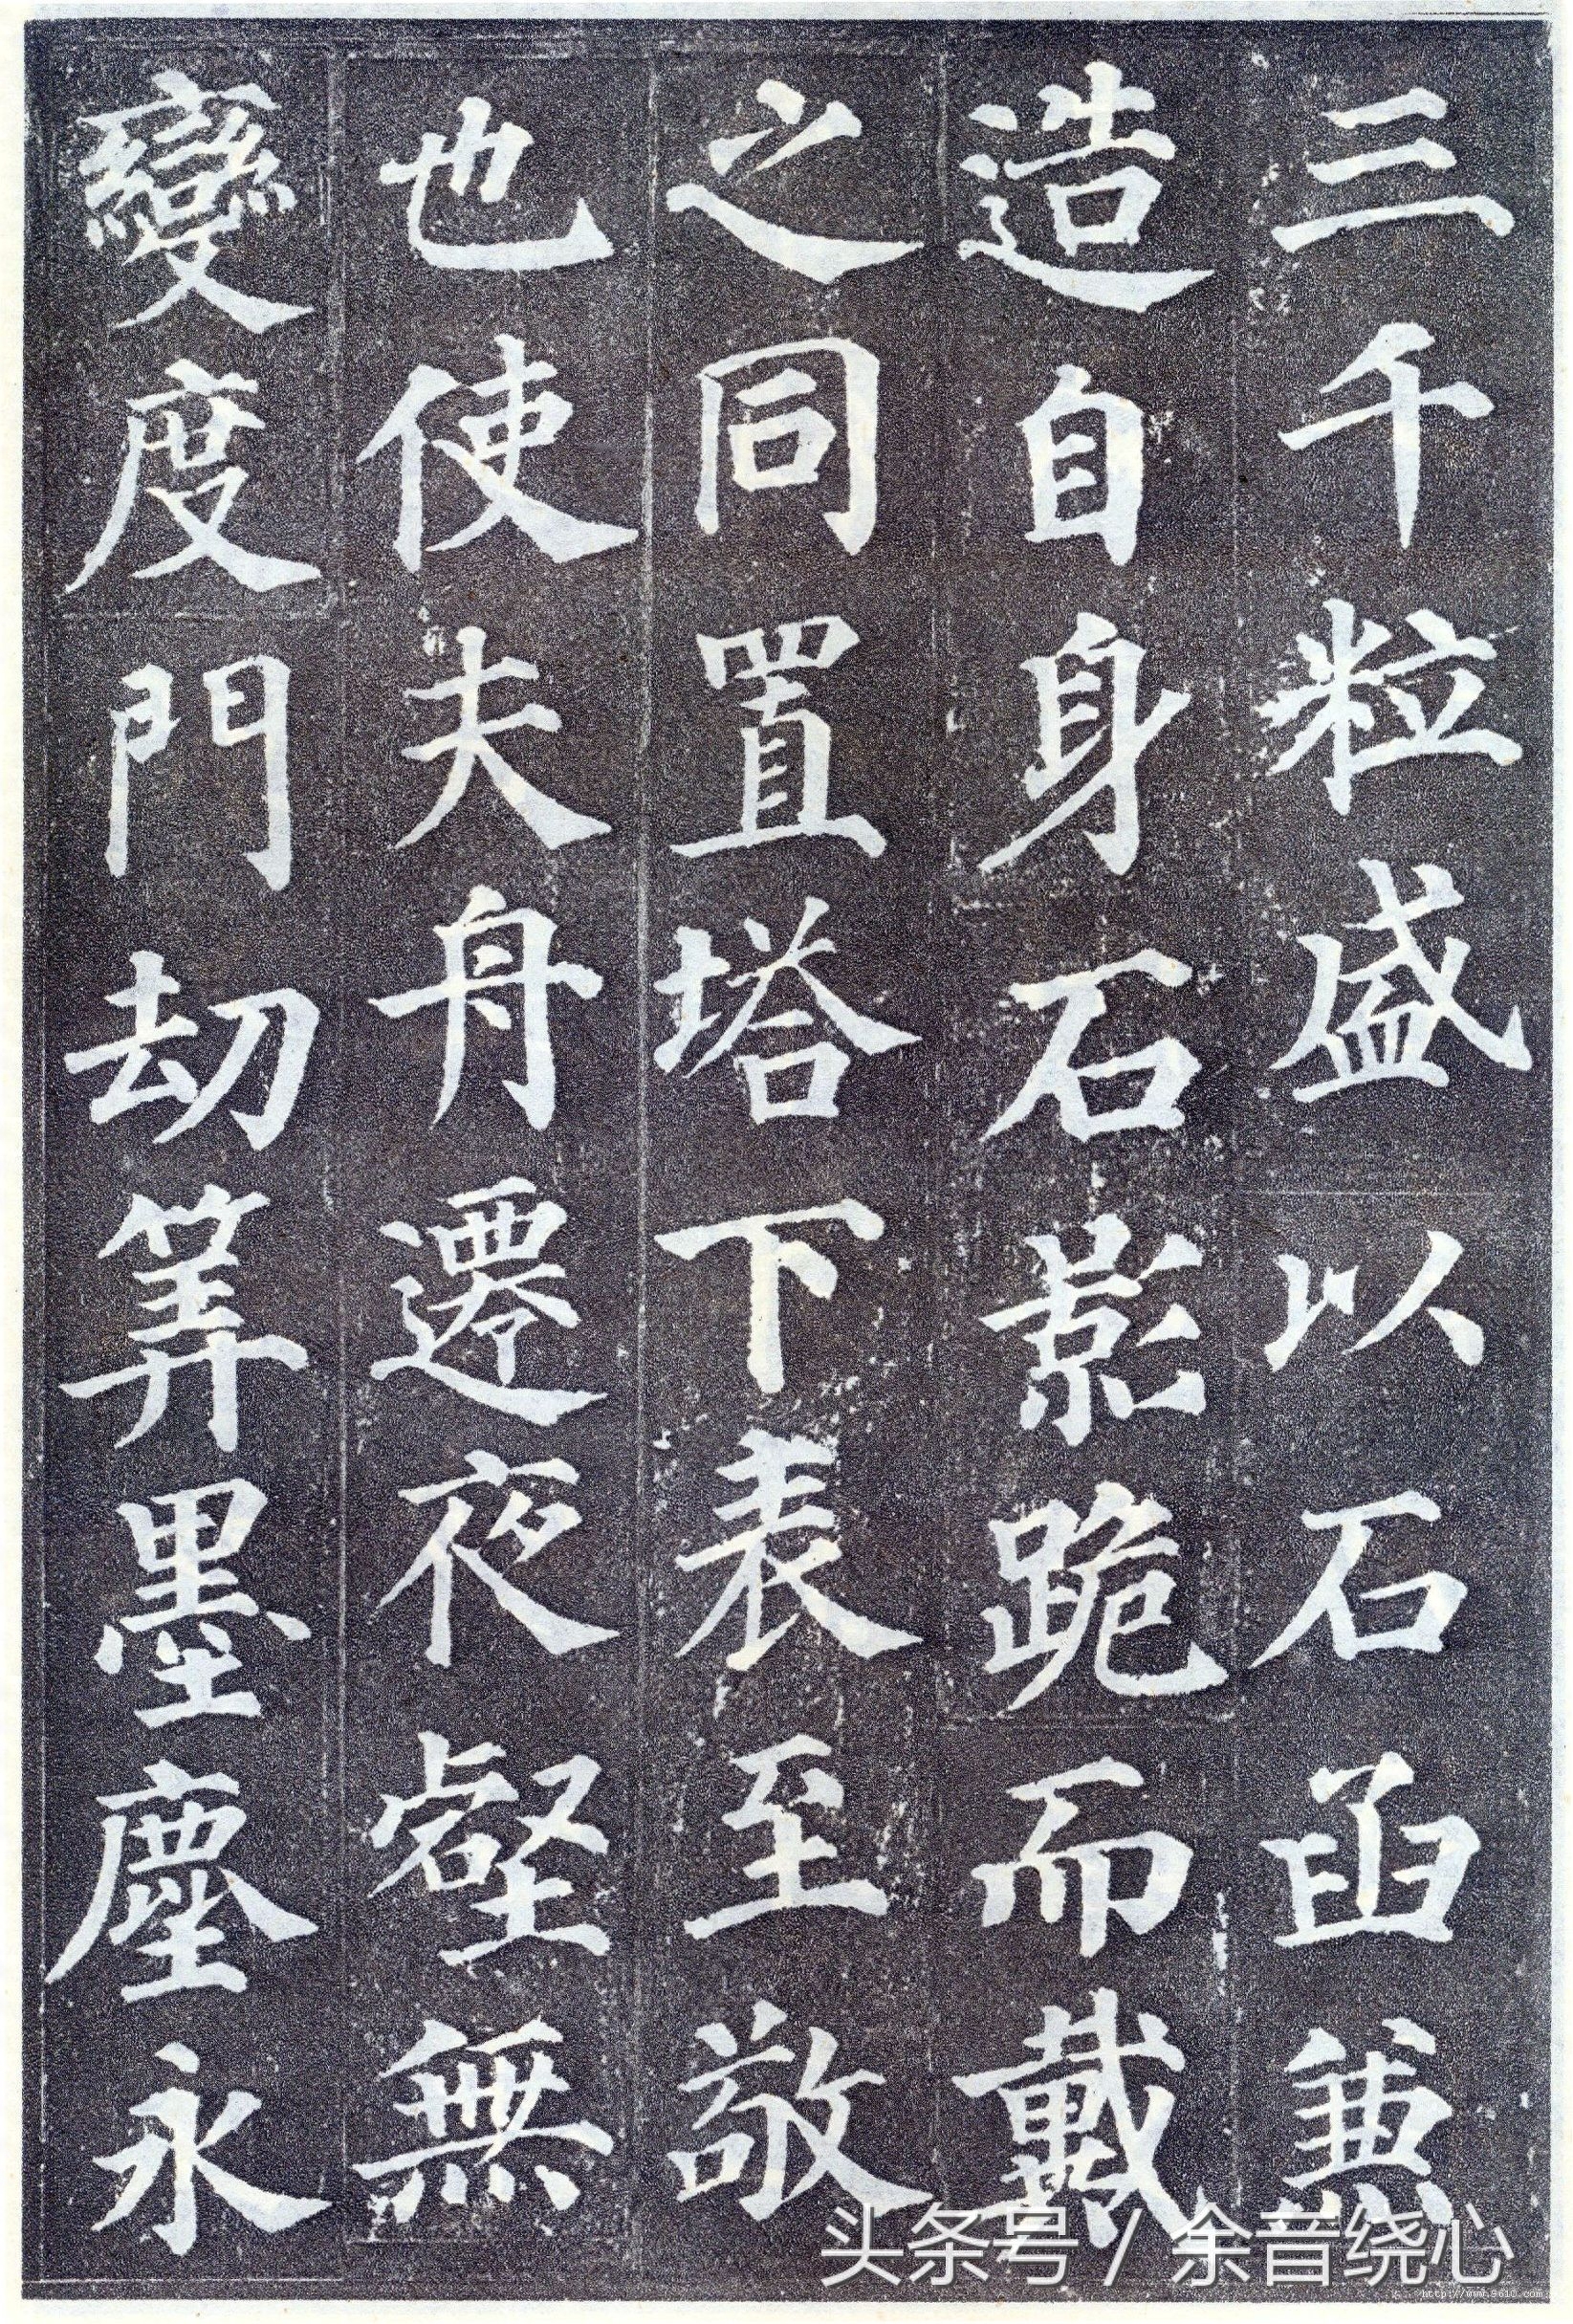 三千粒盛以石函兼
造自身石影跪而戴
之同置塔下表至敬
也使夫舟遷夜壑無
變度門劫筭墨塵永
头条号 / 余音绕心